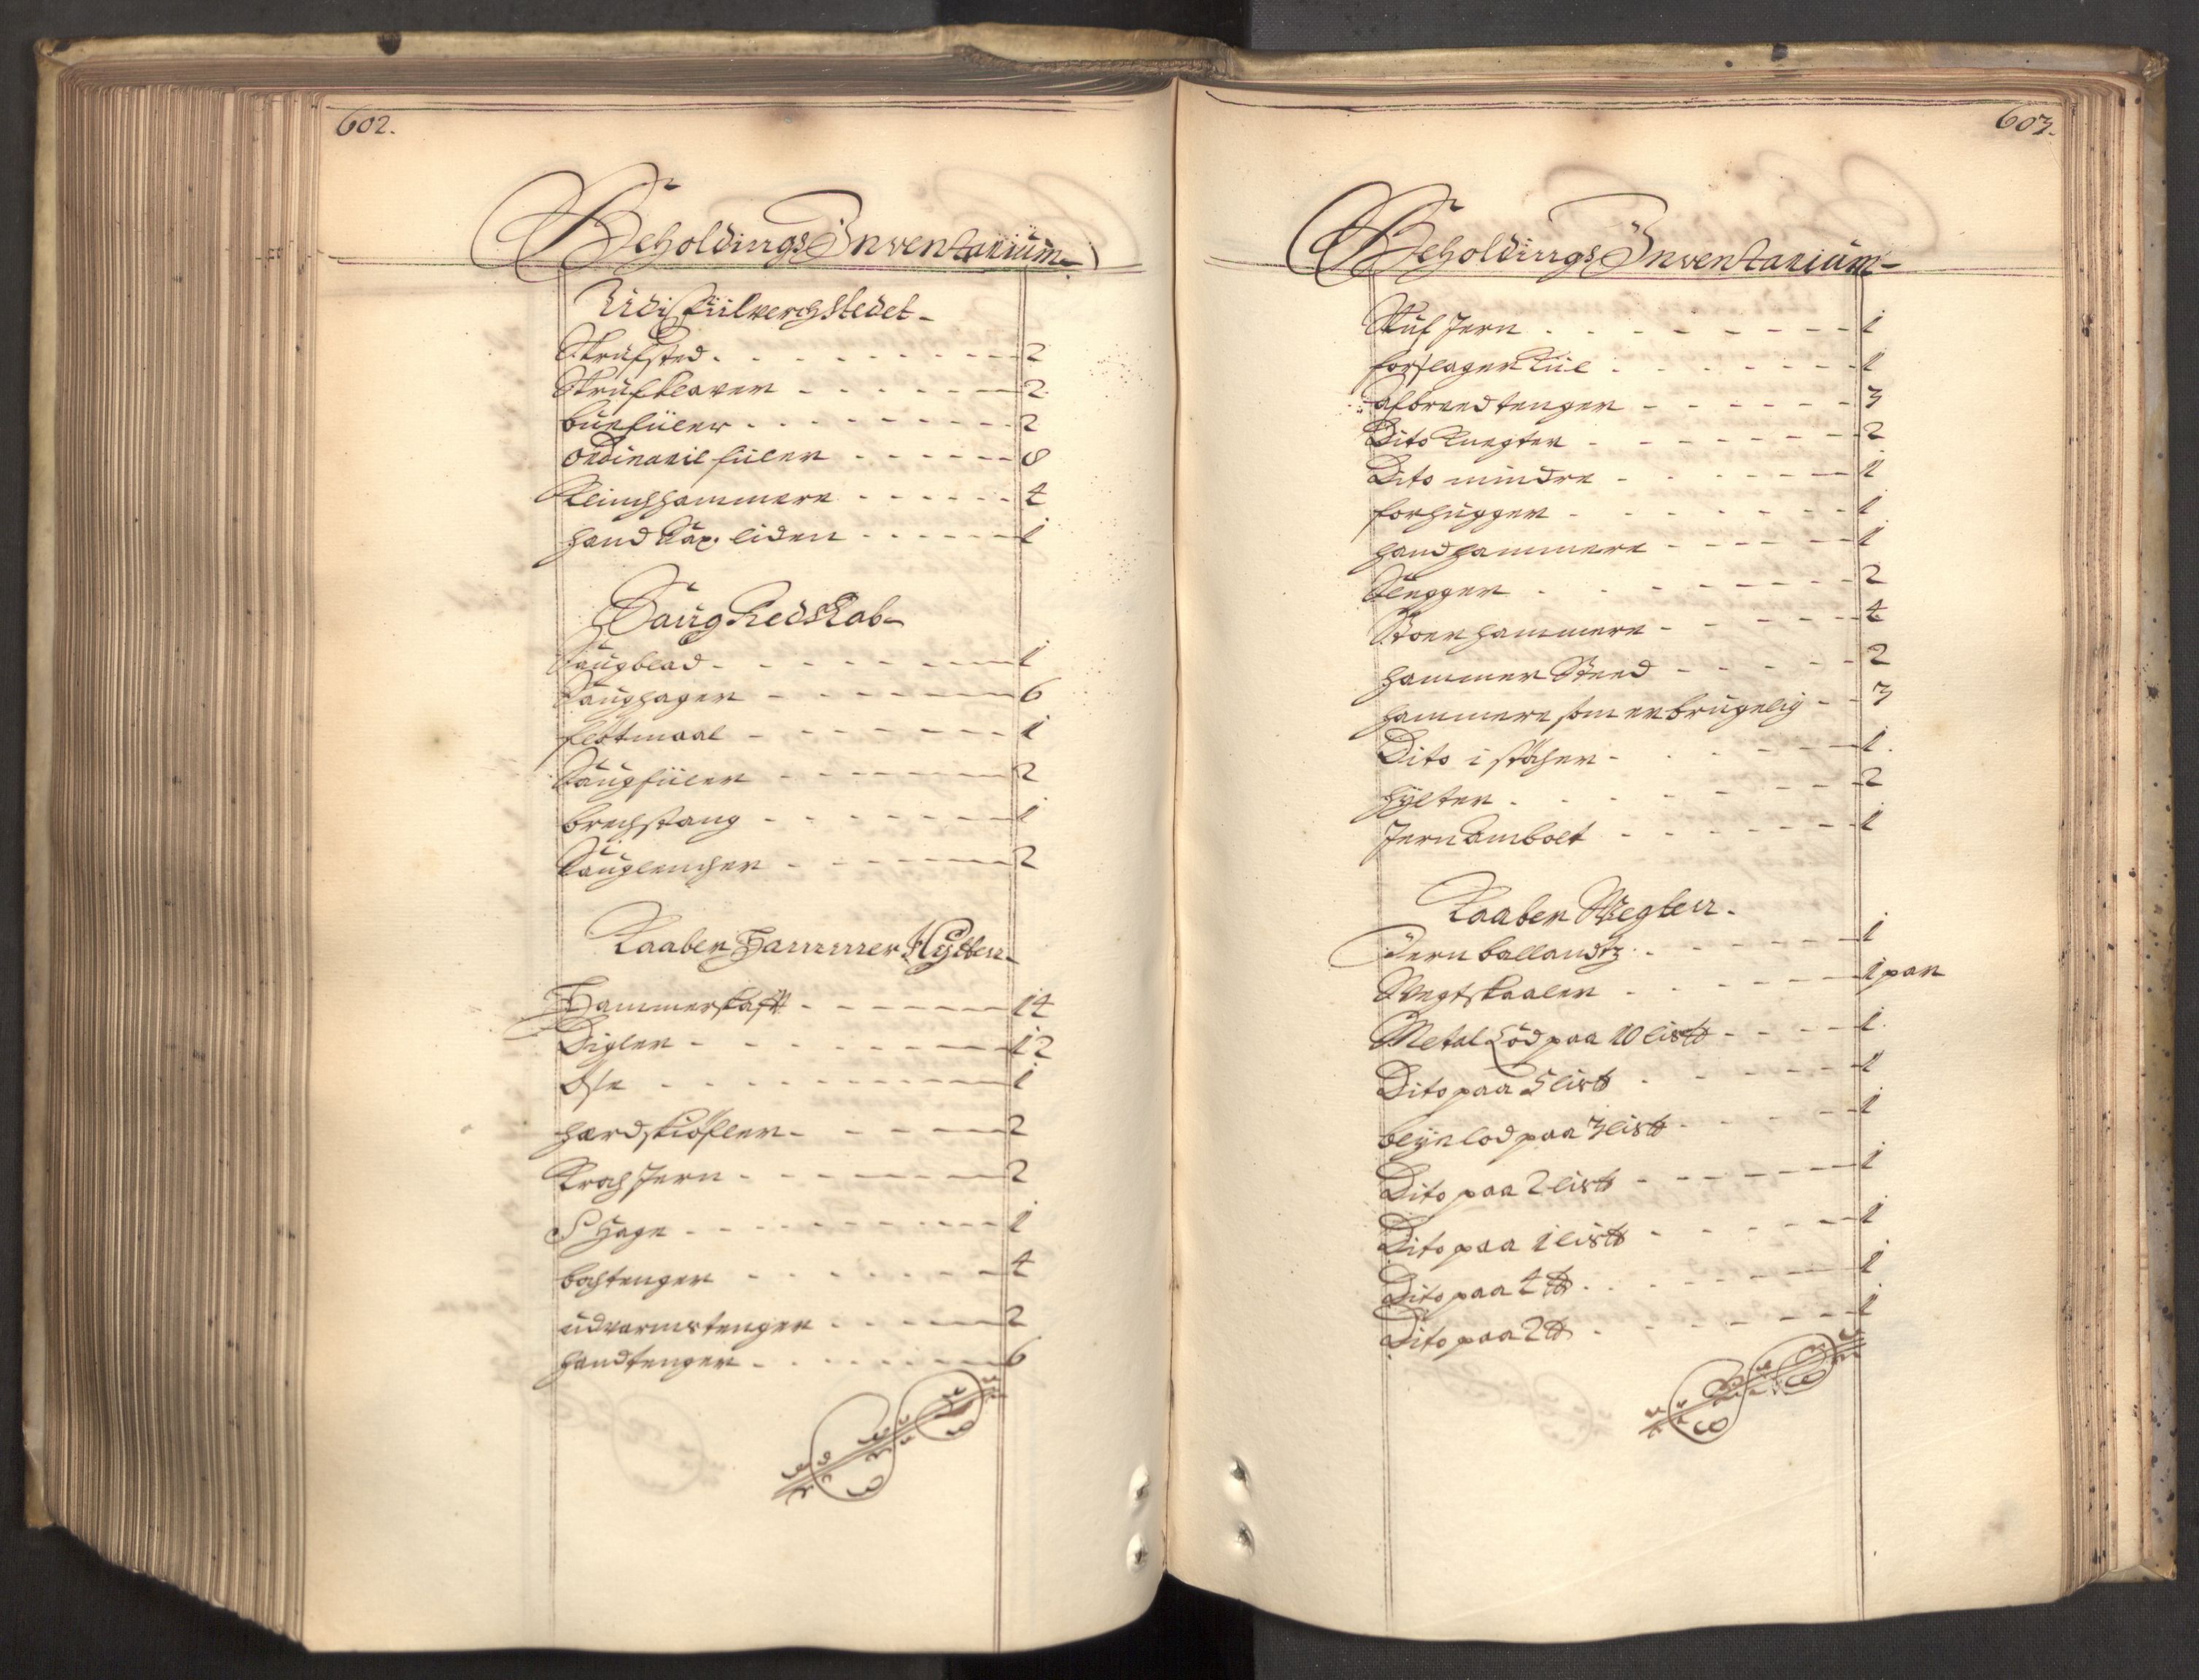 602.
Beholdings Inventarium
Udi fiilverchstedet
Skrufsted 2
Skrufklaver 2
buefiiler 2
Ordinarie fiiler 8
Klinchhammere 4
hand Sax liden 1
Saug Redskab
Saugblad 1
Saughager 6
flötmaal 1
Saugfiiler 2
brechstang 1
Sauglencher 2
Kaaber Hammer Hytten
Hammerskafft 14
Digler 12
Öse 1
hærdskiöfler 2
Krochjern 2
S hage 1
bochtenger 4
udvarmstenger 2
handtenger 6
603.
Beholdings Inventarium
Stuf Jern 1
forslager Kiil 1
afbrend tenger 3
Dito Knegter 2
Dito mindre 1
forhugger 1
handhammere 1
Slegger 2
Stoer hammere 4
hammer Steed 2
hammere som er brugelig 3
Dito i stöcher 1
hylter 2
Jern Ambolt 1
Kaaber Wegten
Jern ballandtz 1
Wegtskaaler 1 par
Metal Lod paa 10 lis℔ 1
Dito paa 5 lis℔ 1
blyelod paa 3 lis℔ 1
Dito paa 2 lis℔ 1
Dito paa 1 lis℔ 1
Dito paa 4 ℔ 1
Dito paa 2 ℔ 1